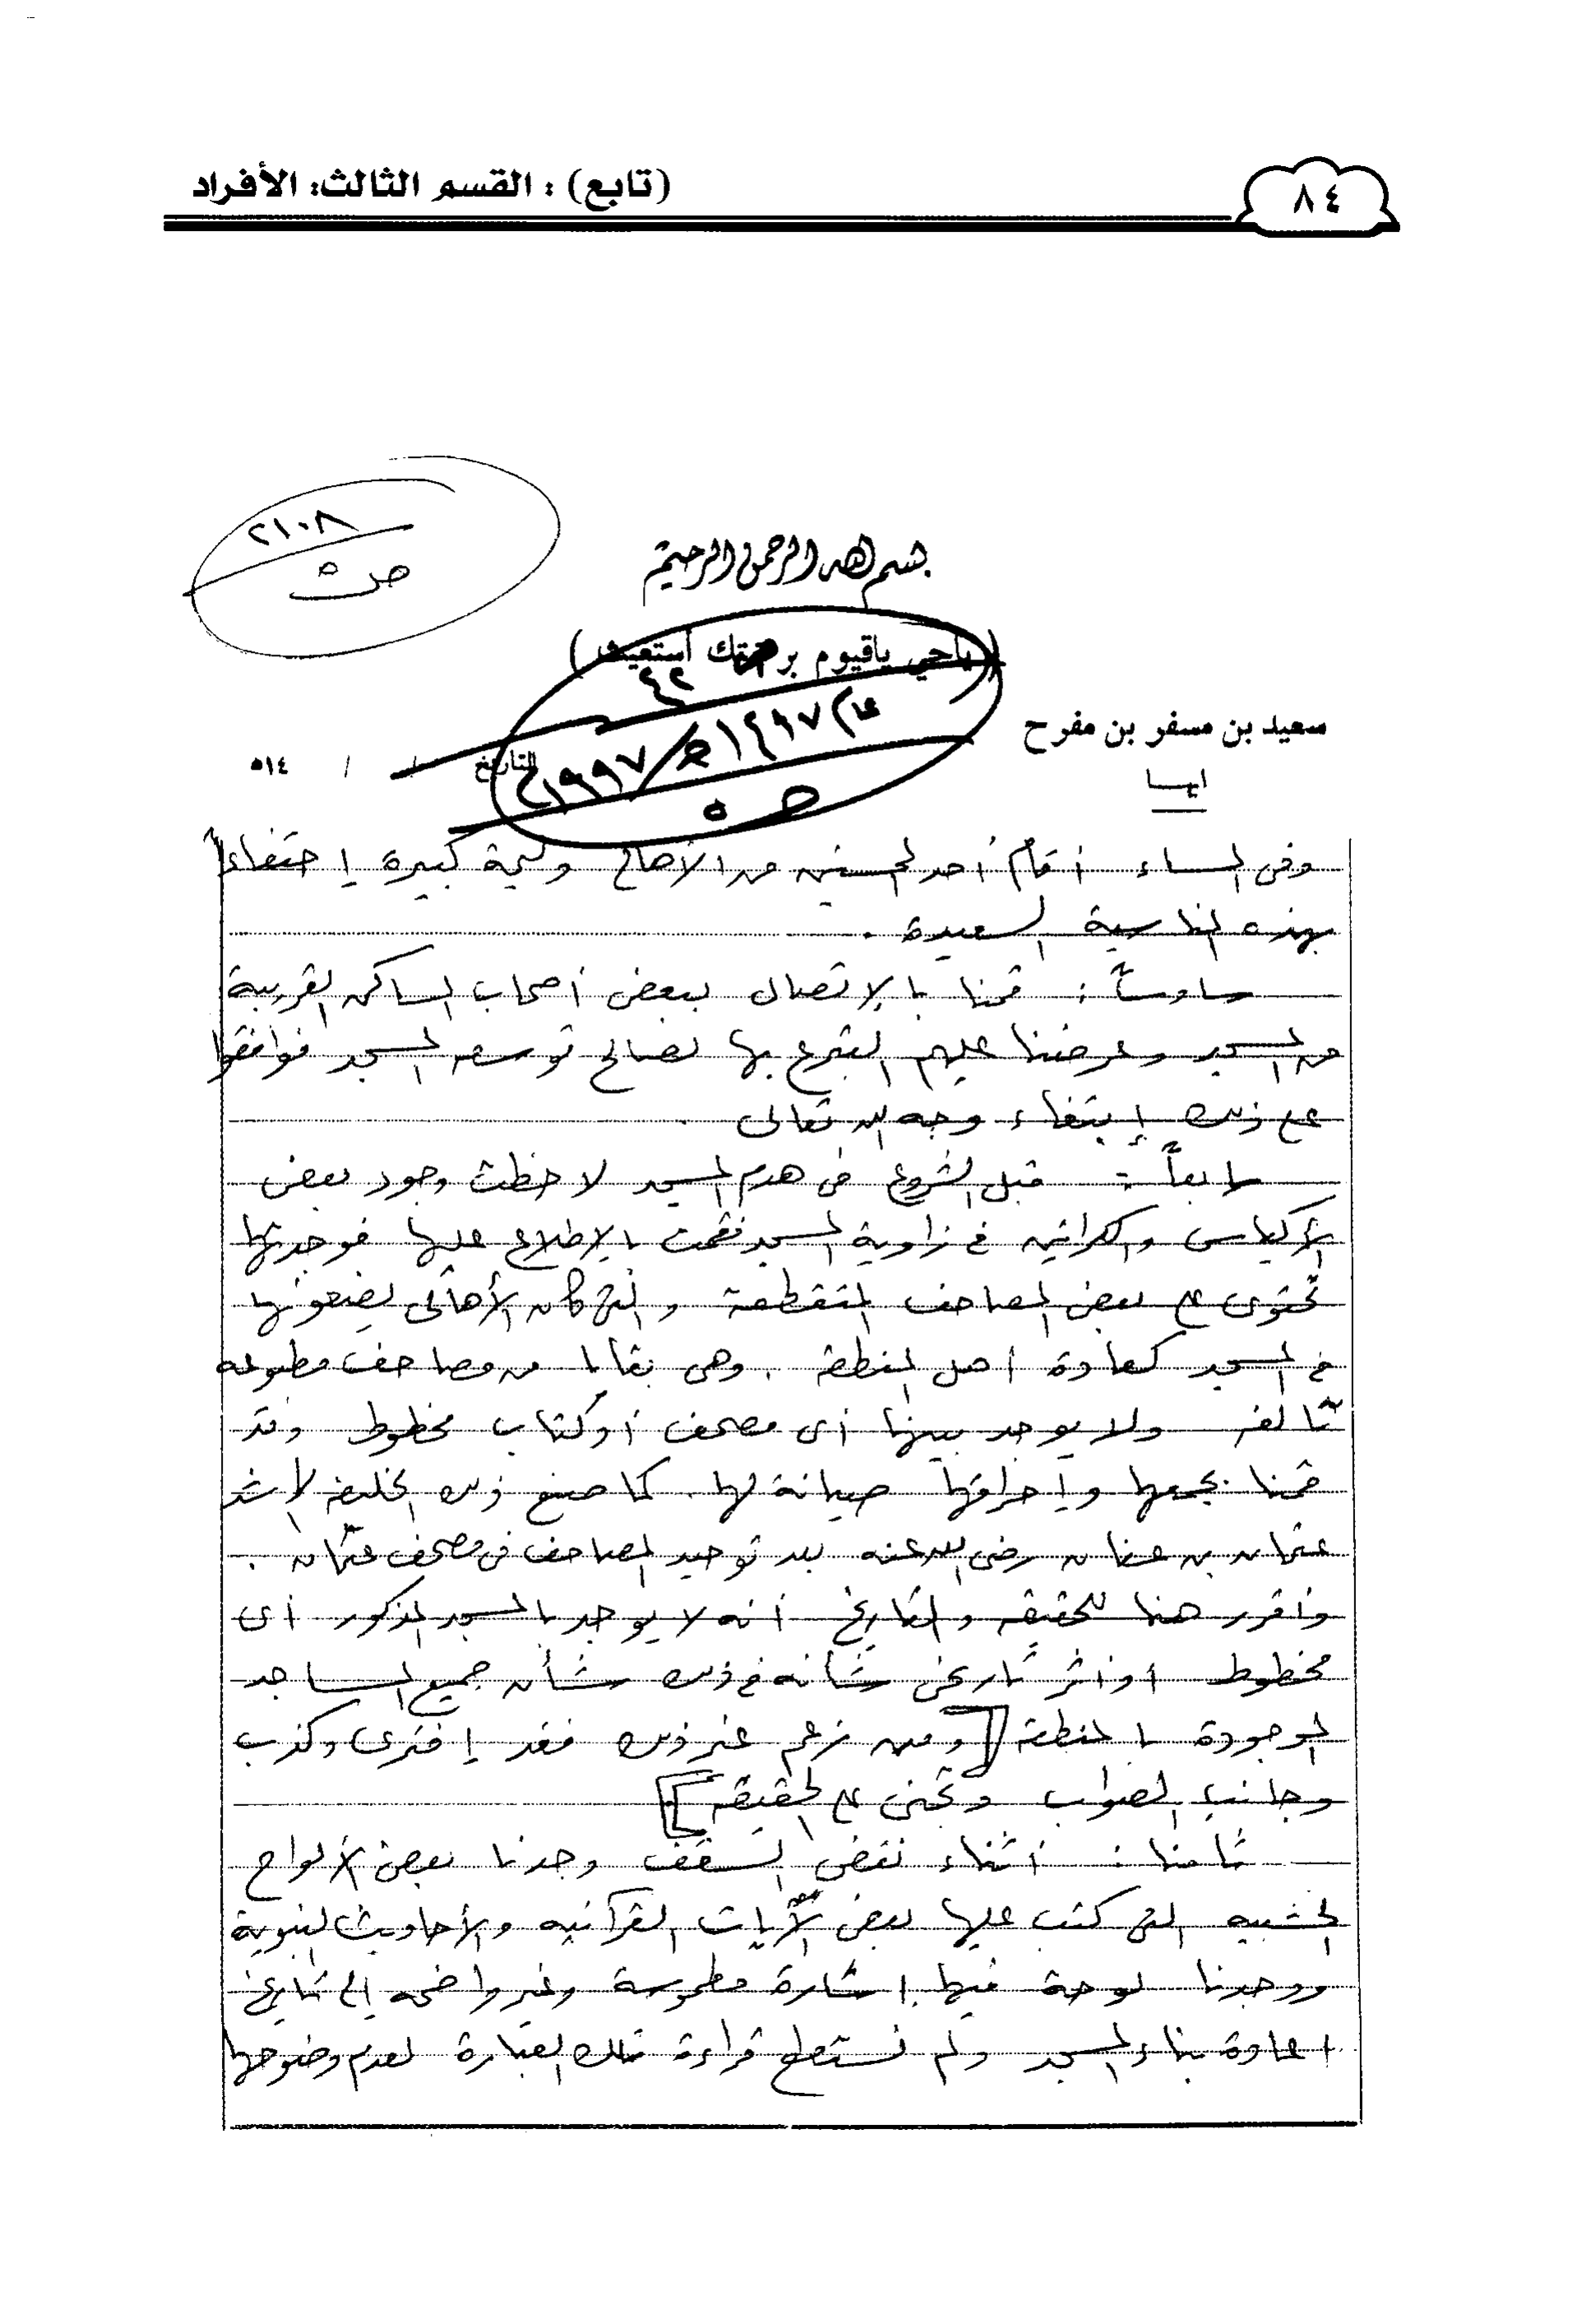 ٨٤
(تابع) : القسم الثالث: الأفراد
٢١٠٨
ص ٥
بسم الله الرحمن الرحيم
(ياحي ياقيوم برحمتك أستغيث)
٤٢
سعيد بن مسفر بن مفرح
عام ١٤١٧هـ/١٩٩٧م
التاريخ / / ١٤هـ
ص ٥
ابها
وفى المساء أقام أحد المحسنين من الأهالي وليمة كبيرة إحتفاءً
بهذه المناسبة السعيدة .
سادساً : قمنا بالإتصال ببعض أصحاب المساكن القريبة
من المسجد وعرضنا عليهم التبرع بها لصالح توسعه المسجد فوافقوا
على ذلك إبتغاء وجه الله تعالى
سابعاً : قبل الشروع فى هدم المسجد لاحظت وجود بعض
الأكياس والكراتين في زاوية المسجد فقمت بالإطلاع عليها فوجدتها
تحتوى على بعض المصاحف المتقطعة والتي كان الأهالى يضعونها
في المسجد كعادة أهل المنطقة . وهى بقايا من مصاحف مطبوعه
تالفه ولا يوجد بينها أى مصحف أو كتاب مخطوط وقد
قمنا بجمعها وإحراقها صيانة لها . كما صنع ذلك الخليفه الراشد
عثمان بن عفان رضى الله عنه بعد توحيد المصاحف فى مصحف عثمان .
وأقرر هنا للحقيقه والتاريخ أنه لا يوجد بالمسجد المذكور أى
مخطوط أو أثر تاريخى شأنه في ذلك شأن جميع المساجد
الموجودة بالمنطقة [ ومن زعم غير ذلك فقد إفترى وكذب
وجانب الصواب وتجنى على الحقيقه ]
ثامنا : أثناء نقض السقف وجدنا بعض الألواح
الخشبيه التى كتب عليها بعض الآيات القرآنيه والأحاديث النبوية
ووجدنا لوحة فيها إشارة مطموسة وغير واضحه الى تاريخ
اعادة بناء المسجد ولم نستطع قراءة تلك العبارة لعدم وضوحها